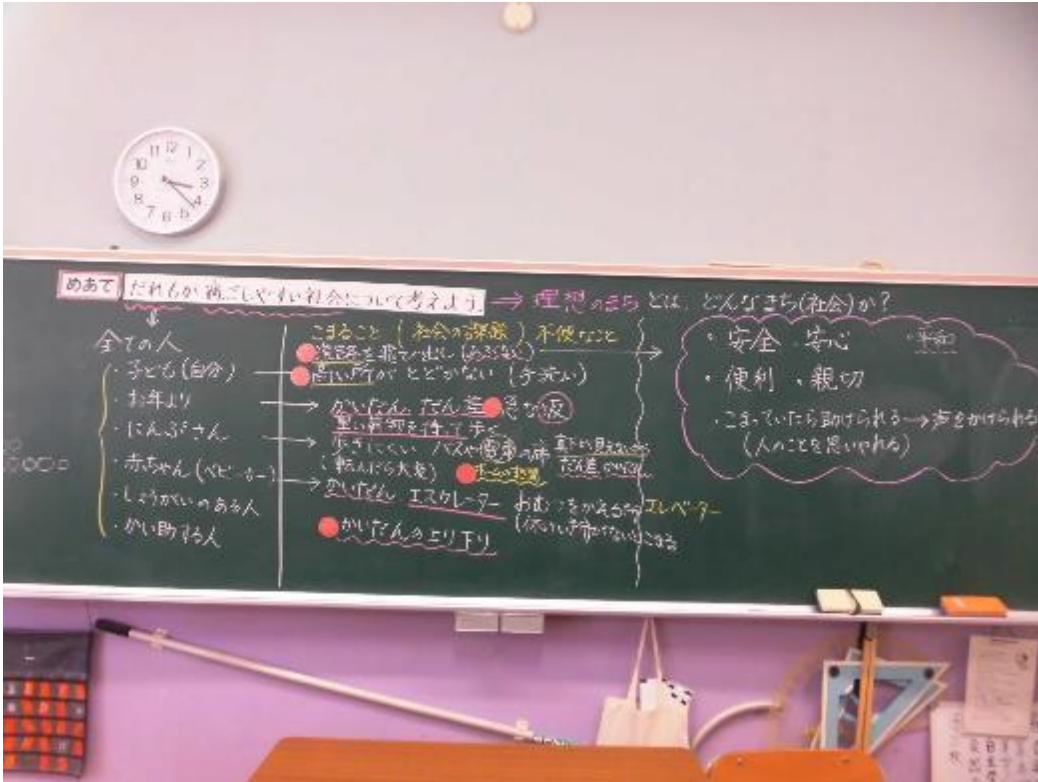 めあて だれもが過ごしやすい社会について考えよう → 理想のまちとは、どんなまち(社会)か?
↓
全ての人
・子ども(自分)
・お年より
・にんぷさん
・赤ちゃん(ベビーカー)
・しょうがいのある人
・かい助する人
こまること(社会の課題) 不便なこと
道路を飛び出し
高い所がとどかない(手洗い)
→ かいだん だん差 急な坂
重い荷物を持って歩く
歩きにくい バスや電車の
(転んだら大変)
かいだん エスカレーター おむつをかえる エレベーター
こまる
かいだんの上り下り
・安全 ・安心 ・平和
・便利 ・親切
・こまっていたら助けられる→声をかけられる
(人のことを思いやれる)
11 12 1
10 2
9 3
8 4
7 6 5